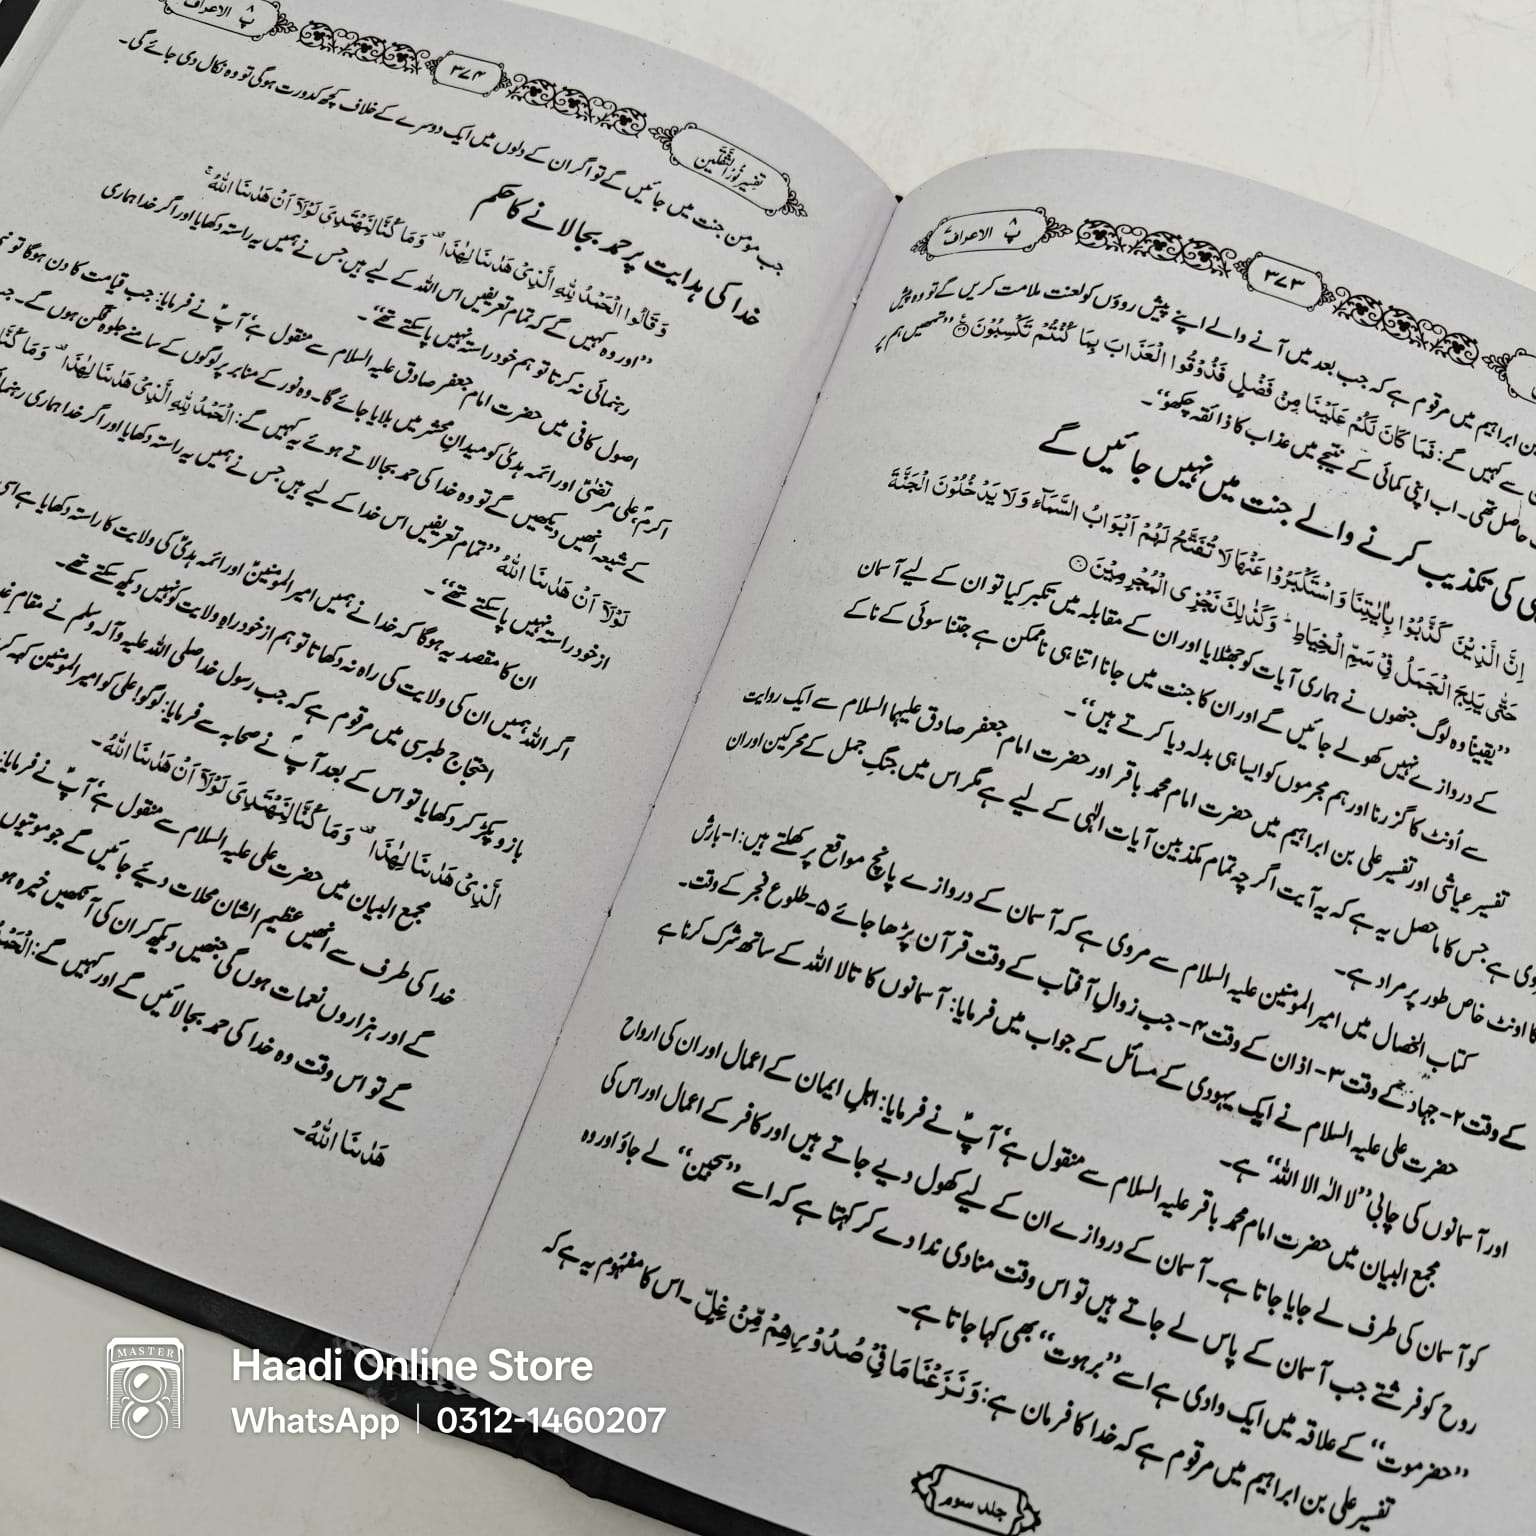 پ ۸ الاعراف
۳۷۳
رواہیم میں مرقوم ہے کہ جب بعد میں آنے والے اپنے پیش روؤں کو لعنت ملامت کریں گے تو وہ پیش
سے کہیں گے: فَمَا كَانَ لَكُمْ عَلَيْنَا مِنْ فَضْلٍ فَذُوْقُوا الْعَذَابَ بِمَا كُنْتُمْ تَكْسِبُوْنَ ”تمھیں ہم پر
حاصل تھی۔ اب اپنی کمائی کے نتیجے میں عذاب کا ذائقہ چکھو“۔
کی تکذیب کرنے والے جنت میں نہیں جائیں گے
اِنَّ الَّذِيْنَ كَذَّبُوْا بِاٰيٰتِنَا وَاسْتَكْبَرُوْا عَنْهَا لَا تُفَتَّحُ لَهُمْ اَبْوَابُ السَّمَآءِ وَلَا يَدْخُلُوْنَ الْجَنَّةَ
حَتّٰى يَلِجَ الْجَمَلُ فِيْ سَمِّ الْخِيَاطِ ؕ وَكَذٰلِكَ نَجْزِى الْمُجْرِمِيْنَ
”یقیناً وہ لوگ جنھوں نے ہماری آیات کو جھٹلایا اور ان کے مقابلہ میں تکبر کیا تو ان کے لیے آسمان
کے دروازے نہیں کھولے جائیں گے اور ان کا جنت میں جانا اتنا ہی ناممکن ہے جتنا سوئی کے ناکے
سے اُونٹ کا گزرنا اور ہم مجرموں کو ایسا ہی بدلہ دیا کرتے ہیں“۔
تفسیر عیاشی اور تفسیر علی بن ابراہیم میں حضرت امام محمد باقر اور حضرت امام جعفر صادق علیہما السلام سے ایک روایت
ہے جس کا ماحصل یہ ہے کہ یہ آیت اگرچہ تمام مکذبین آیات الٰہی کے لیے ہے مگر اس میں جنگِ جمل کے محرکین اور ان
کا اونٹ خاص طور پر مراد ہے۔
کتاب الخصال میں امیر المومنین علیہ السلام سے مروی ہے کہ آسمان کے دروازے پانچ مواقع پر کھلتے ہیں: ۱- بارش
کے وقت ۲- جہاد کے وقت ۳- اذان کے وقت ۴- جب زوالِ آفتاب کے وقت قرآن پڑھا جائے ۵- طلوع فجر کے وقت۔
حضرت علی علیہ السلام نے ایک یہودی کے مسائل کے جواب میں فرمایا: آسمانوں کا تالا اللہ کے ساتھ شرک کرنا ہے
اور آسمانوں کی چابی ”لا الٰہ الا اللہ“ ہے۔
مجمع البیان میں حضرت امام محمد باقر علیہ السلام سے منقول ہے‘ آپؑ نے فرمایا: اہلِ ایمان کے اعمال اور ان کی ارواح
کو آسمان کی طرف لے جایا جاتا ہے۔ آسمان کے دروازے ان کے لیے کھول دیے جاتے ہیں اور کافر کے اعمال اور اس کی
روح کو فرشتے جب آسمان کے پاس لے جاتے ہیں تو اس وقت منادی ندا دے کر کہتا ہے کہ اسے ”سجین“ لے جاؤ اور وہ
”حضرموت“ کے علاقہ میں ایک وادی ہے اسے ”برہوت“ بھی کہا جاتا ہے۔
تفسیر علی بن ابراہیم میں مرقوم ہے کہ خدا کا فرمان ہے: وَنَزَعْنَا مَا فِيْ صُدُوْرِهِمْ مِّنْ غِلٍّ۔ اس کا مفہوم یہ ہے کہ
جلد سوم
تفسیر نُورُ الثَّقَلَین
۳۷۴
پ ۸ الاعراف
جب مومن جنت میں جائیں گے تو اگر ان کے دلوں میں ایک دوسرے کے خلاف کچھ کدورت ہوگی تو وہ نکال دی جائے گی۔
خدا کی ہدایت پر حمد بجا لانے کا حکم
وَقَالُوا الْحَمْدُ لِلهِ الَّذِىْ هَدٰىنَا لِهٰذَا ۫ وَمَا كُنَّا لِنَهْتَدِىَ لَوْلَاۤ اَنْ هَدٰىنَا اللهُ ۚ
”اور وہ کہیں گے کہ تمام تعریفیں اس اللہ کے لیے ہیں جس نے ہمیں یہ راستہ دکھایا اور اگر خدا ہماری
رہنمائی نہ کرتا تو ہم خود راستہ نہیں پا سکتے تھے“۔
اصول کافی میں حضرت امام جعفر صادق علیہ السلام سے منقول ہے‘ آپؑ نے فرمایا: جب قیامت کا دن ہوگا تو
اکرمؐ، علی مرتضیٰؑ اور ائمہ ہدیٰؑ کو میدانِ محشر میں بلایا جائے گا۔ وہ نور کے منابر پر لوگوں کے سامنے جلوہ فگن ہوں گے۔ جب
کے شیعہ انھیں دیکھیں گے تو وہ خدا کی حمد بجا لاتے ہوئے یہ کہیں گے: الْحَمْدُ لِلهِ الَّذِىْ هَدٰىنَا لِهٰذَا ۫ وَمَا كُنَّا
لَوْلَاۤ اَنْ هَدٰىنَا اللهُ ”تمام تعریفیں اس خدا کے لیے ہیں جس نے ہمیں یہ راستہ دکھایا اور اگر خدا ہماری رہنما
از خود راستہ نہیں پا سکتے تھے“۔
ان کا مقصد یہ ہوگا کہ خدا نے ہمیں امیر المومنینؑ اور ائمہ ہدیٰؑ کی ولایت کا راستہ دکھایا ہے
اگر اللہ ہمیں ان کی ولایت کی راہ نہ دکھاتا تو ہم از خود راہِ ولایت کو نہیں دیکھ سکتے تھے۔
احتجاج طبرسی میں مرقوم ہے کہ جب رسول خدا صلی اللہ علیہ وآلہ وسلم نے مقام
بازو پکڑ کر دکھایا تو اس کے بعد آپؐ نے صحابہ سے فرمایا: لوگو! علی کو امیر المومنین کہہ
الَّذِىْ هَدٰىنَا لِهٰذَا ۫ وَمَا كُنَّا لِنَهْتَدِىَ لَوْلَاۤ اَنْ هَدٰىنَا اللهُ۔
مجمع البیان میں حضرت علی علیہ السلام سے منقول ہے‘ آپؑ نے فرمایا:
خدا کی طرف سے انھیں عظیم الشان محلات دیئے جائیں گے جو موتیوں
گے اور ہزاروں نعمات ہوں گی جنھیں دیکھ کر ان کی آنکھیں خیرہ ہو
گے تو اس وقت وہ خدا کی حمد بجا لائیں گے اور کہیں گے: الْحَمْدُ
هَدٰىنَا اللهُ۔
MASTER
Haadi Online Store
WhatsApp | 0312-1460207